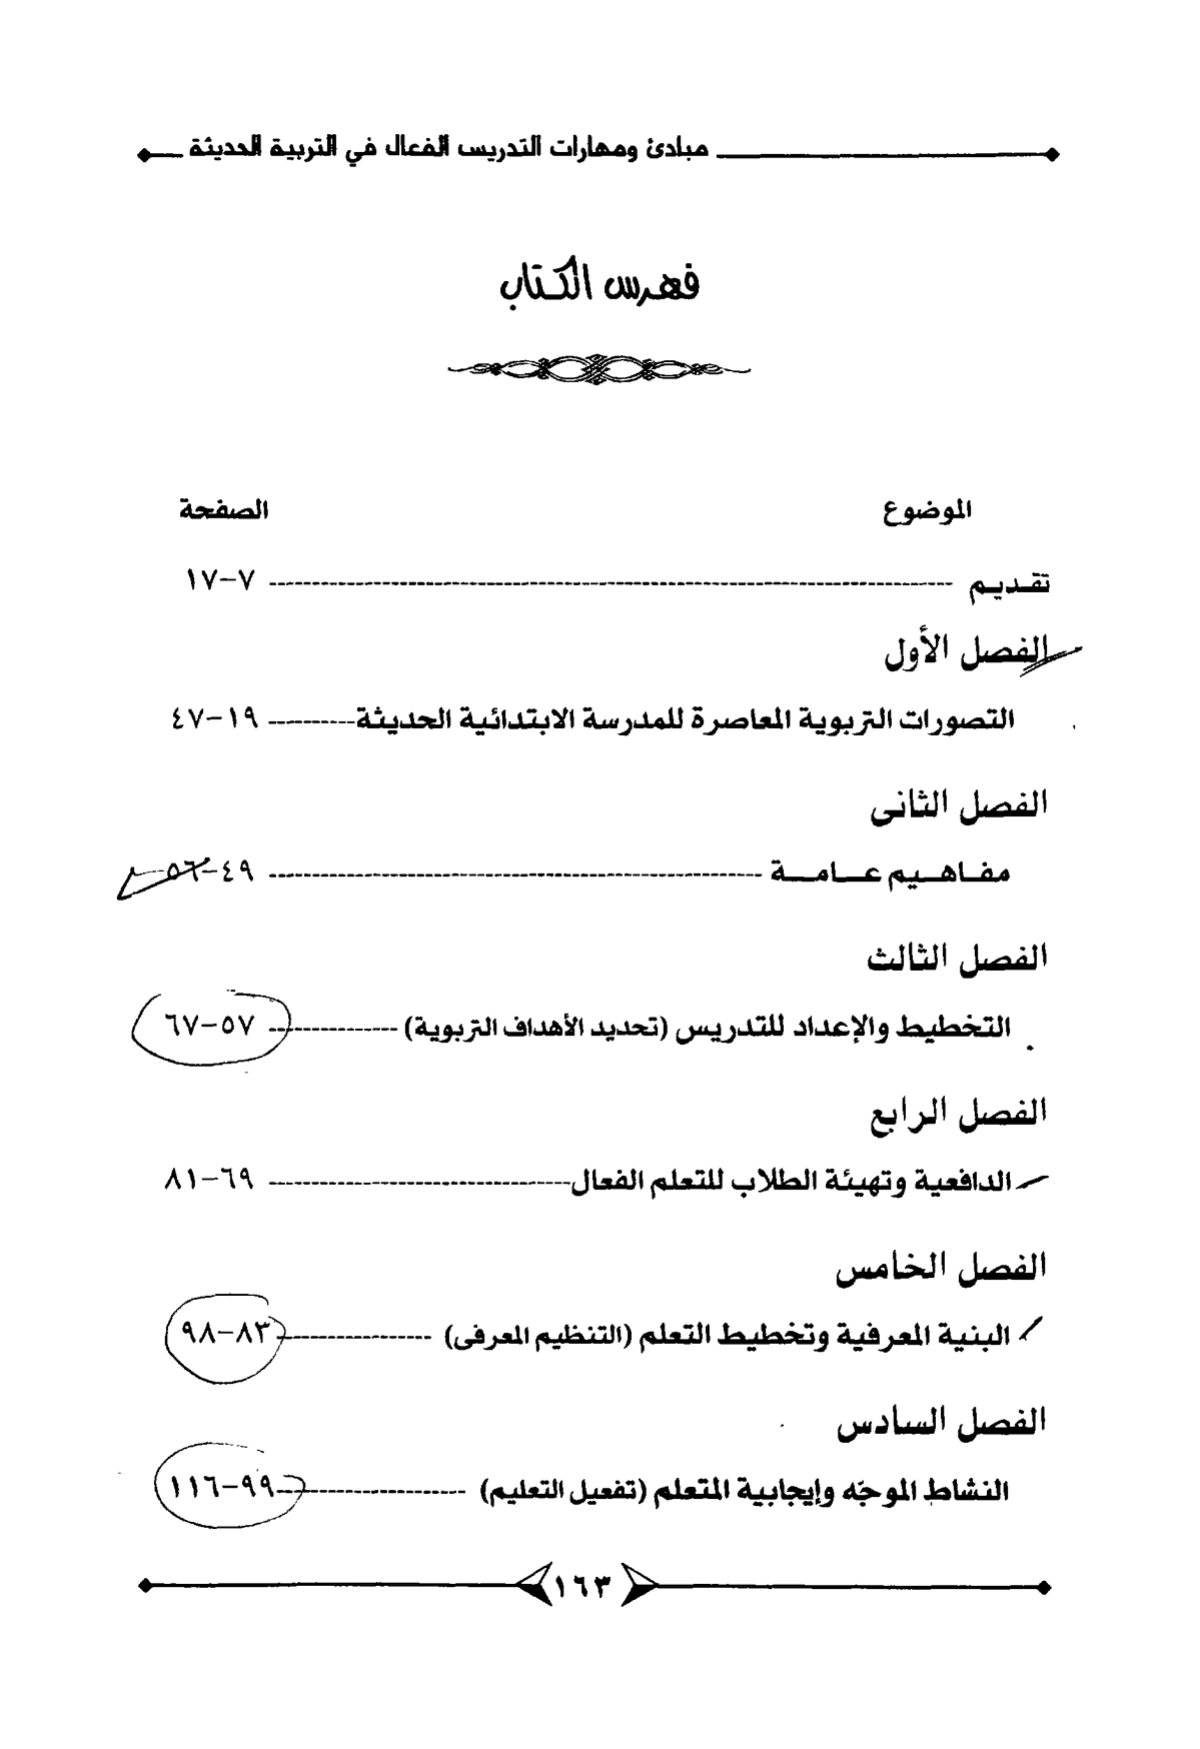 مبادئ ومهارات التدريس الفعال في التربية الحديثة
فهرس الكتاب
الموضوع الصفحة
تقديم ٧-١٧
الفصل الأول
التصورات التربوية المعاصرة للمدرسة الابتدائية الحديثة ١٩-٤٧
الفصل الثانى
مفاهيم عامة ٤٩-٥٦
الفصل الثالث
التخطيط والإعداد للتدريس (تحديد الأهداف التربوية) ٥٧-٦٧
الفصل الرابع
الدافعية وتهيئة الطلاب للتعلم الفعال ٦٩-٨١
الفصل الخامس
البنية المعرفية وتخطيط التعلم (التنظيم المعرفى) ٨٣-٩٨
الفصل السادس
النشاط الموجّه وإيجابية المتعلم (تفعيل التعليم) ٩٩-١١٦
١٦٣